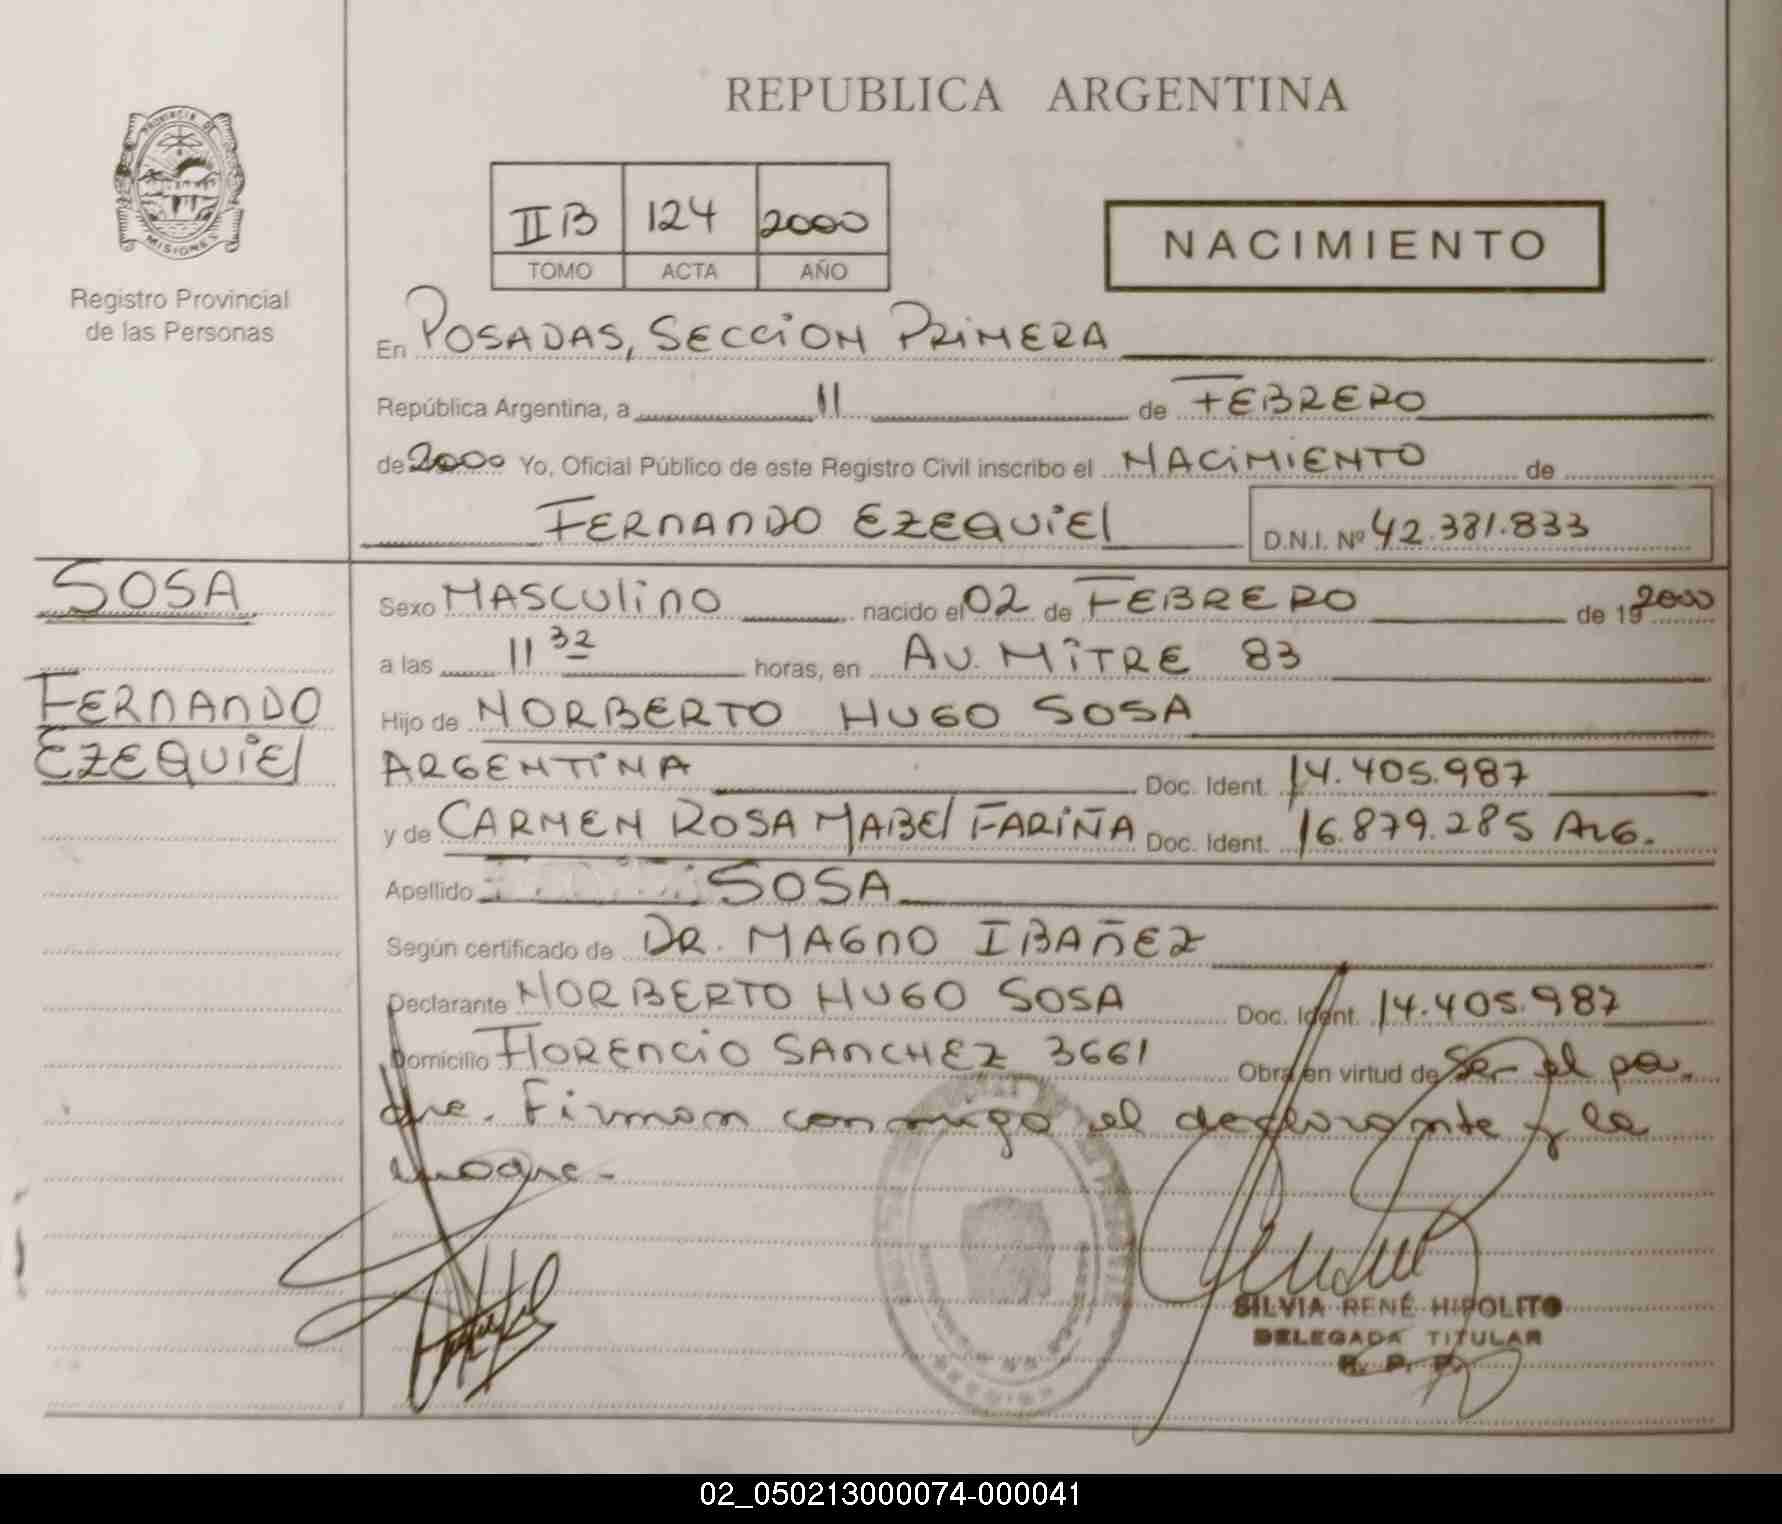 REPUBLICA ARGENTINA
PROVINCIA DE
MISIONES
Registro Provincial
de las Personas
II B 124 2000
TOMO ACTA AÑO
NACIMIENTO
En POSADAS, SECCION PRIMERA
República Argentina, a 11 de FEBRERO
de 2000 Yo, Oficial Público de este Registro Civil inscribo el NACIMIENTO de
FERNANDO EZEQUIEL D.N.I. Nº 42.381.833
SOSA
FERNANDO
EZEQUIEL
Sexo MASCULINO nacido el 02 de FEBRERO de 19 2000
a las 11 32 horas, en AV. MITRE 83
Hijo de NORBERTO HUGO SOSA
ARGENTINA Doc. Ident. 14.405.987
y de CARMEN ROSA MABEL FARIÑA Doc. Ident. 16.879.285 ARG.
Apellido SOSA
Según certificado de DR. MAGNO IBAÑEZ
Declarante NORBERTO HUGO SOSA Doc. Ident. 14.405.987
Domicilio FLORENCIO SANCHEZ 3661 Obra en virtud de Ser el pa-
dre. Firman conmigo el declarante y la
madre-
SILVIA RENÉ HIPOLITO
DELEGADA TITULAR
R. P. P.
02_050213000074-000041